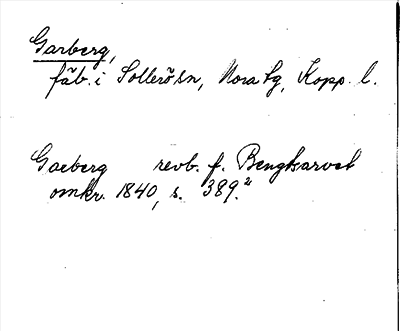 Garberg,
fäb. i Sollerö sn, Mora tg, Kopp. l.
Gaeberg revb. f. Bengtsarvet
omkr. 1840, s. 389.